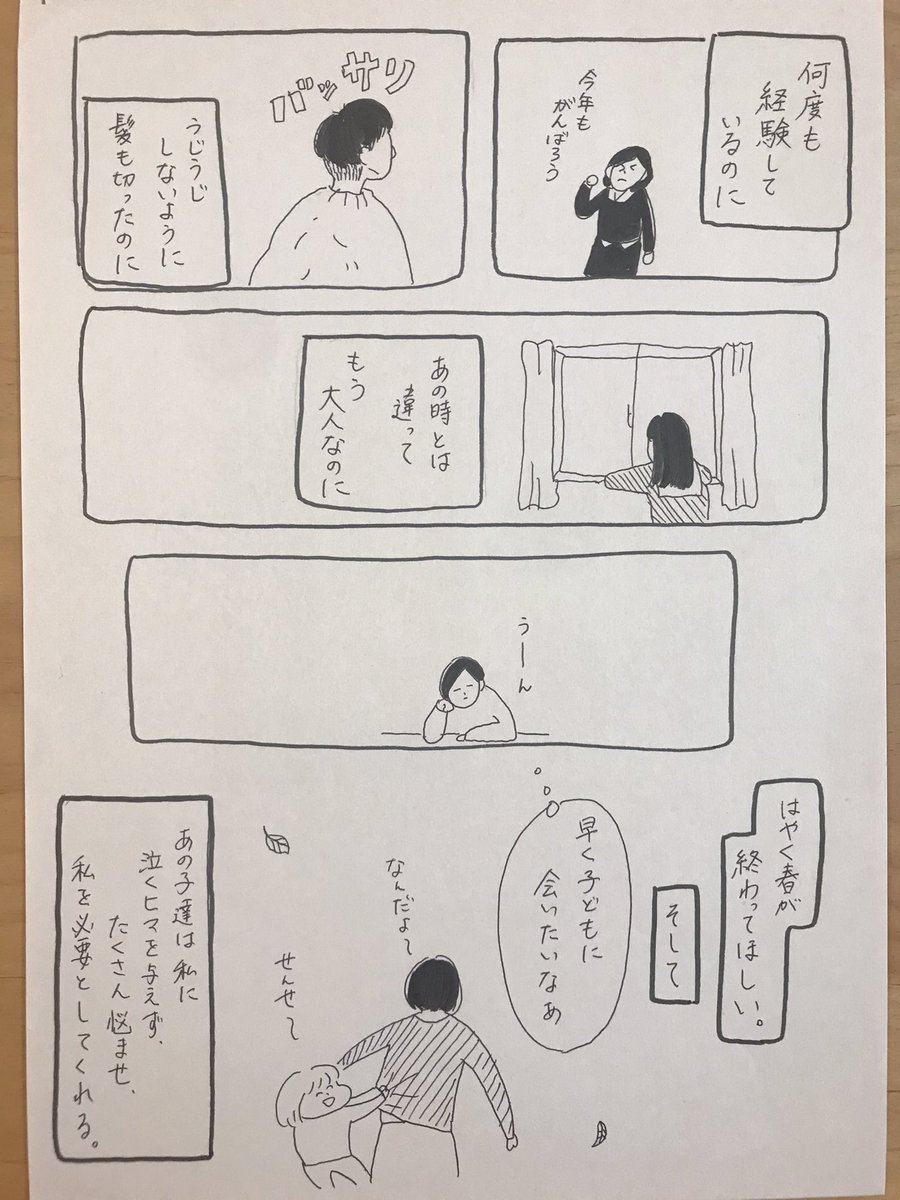 何度も
経験して
いるのに
今年も
がんばろう
バッサリ
うじうじ
しないように
髪も切ったのに
あの時とは
違って
もう
大人なのに
うーん
はやく春が
終わってほしい。
そして
早く子どもに
会いたいなぁ
なんだよ〜
せんせ〜
あの子達は私に
泣くヒマを与えず、
たくさん悩ませ、
私を必要としてくれる。